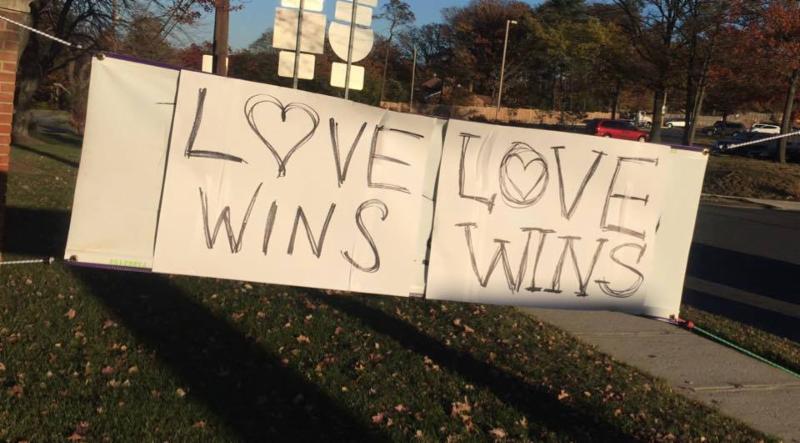 LOVE
WINS
LOVE
WINS